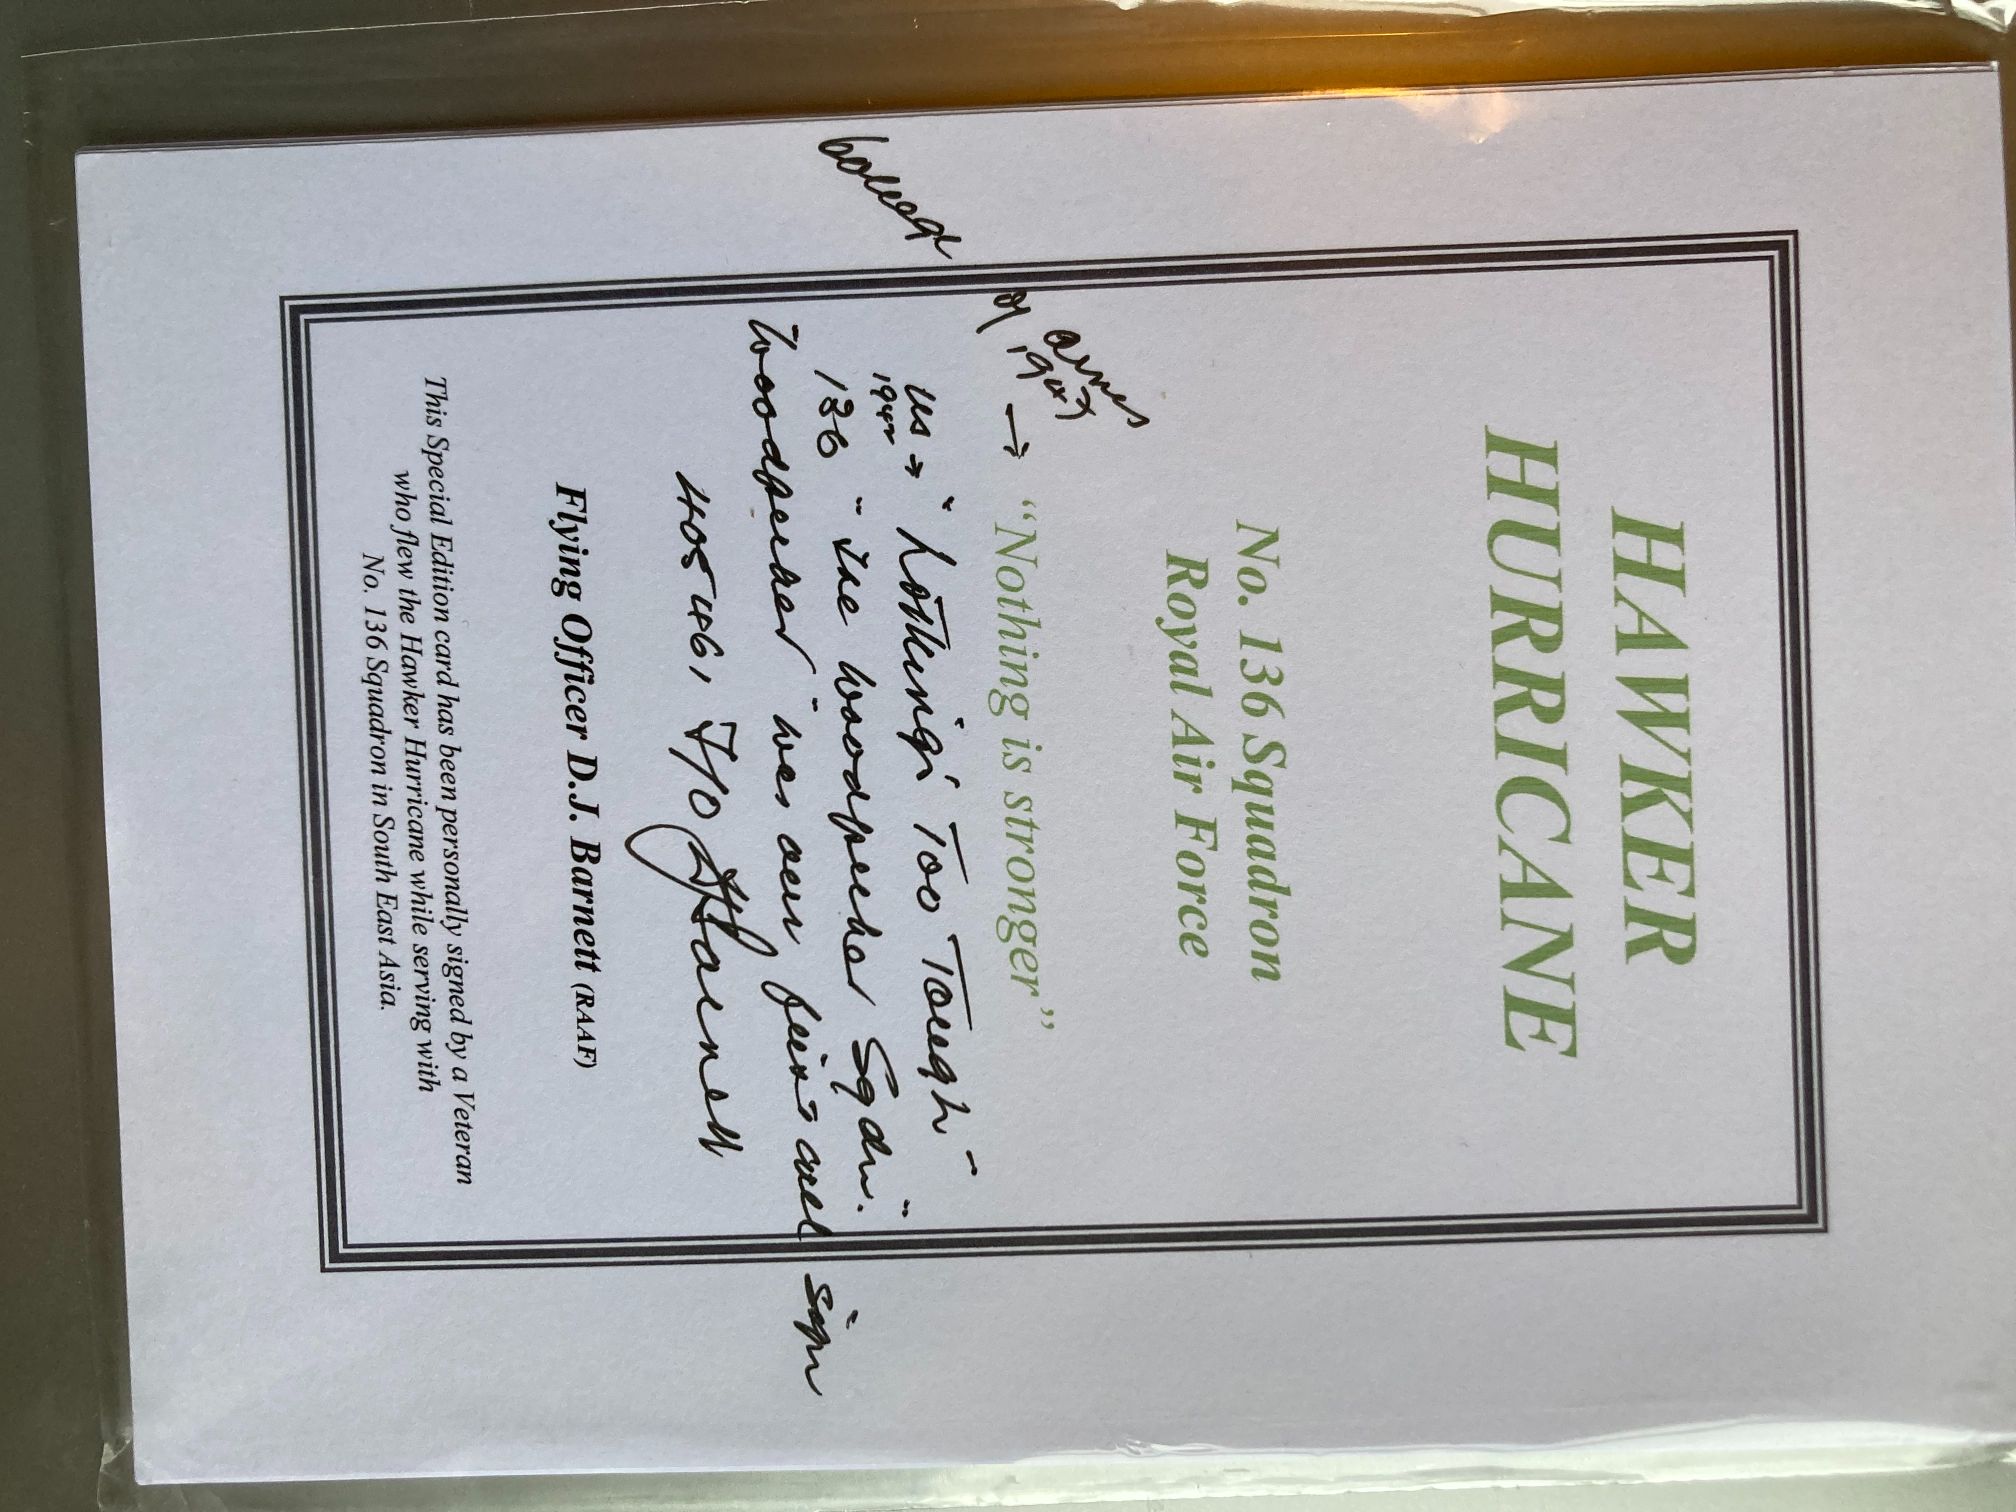 HAWKER
HURRICANE
No. 136 Squadron
Royal Air Force
arms
of 1943 → “Nothing is stronger”
us → "Nothing Too Tough"
1942
136 - "The Woodpecker Sqdn."
Woodpecker" was our first call sign
405461, F/O DJ Barnett
Flying Officer D.J. Barnett (RAAF)
This Special Edition card has been personally signed by a Veteran
who flew the Hawker Hurricane while serving with
No. 136 Squadron in South East Asia.